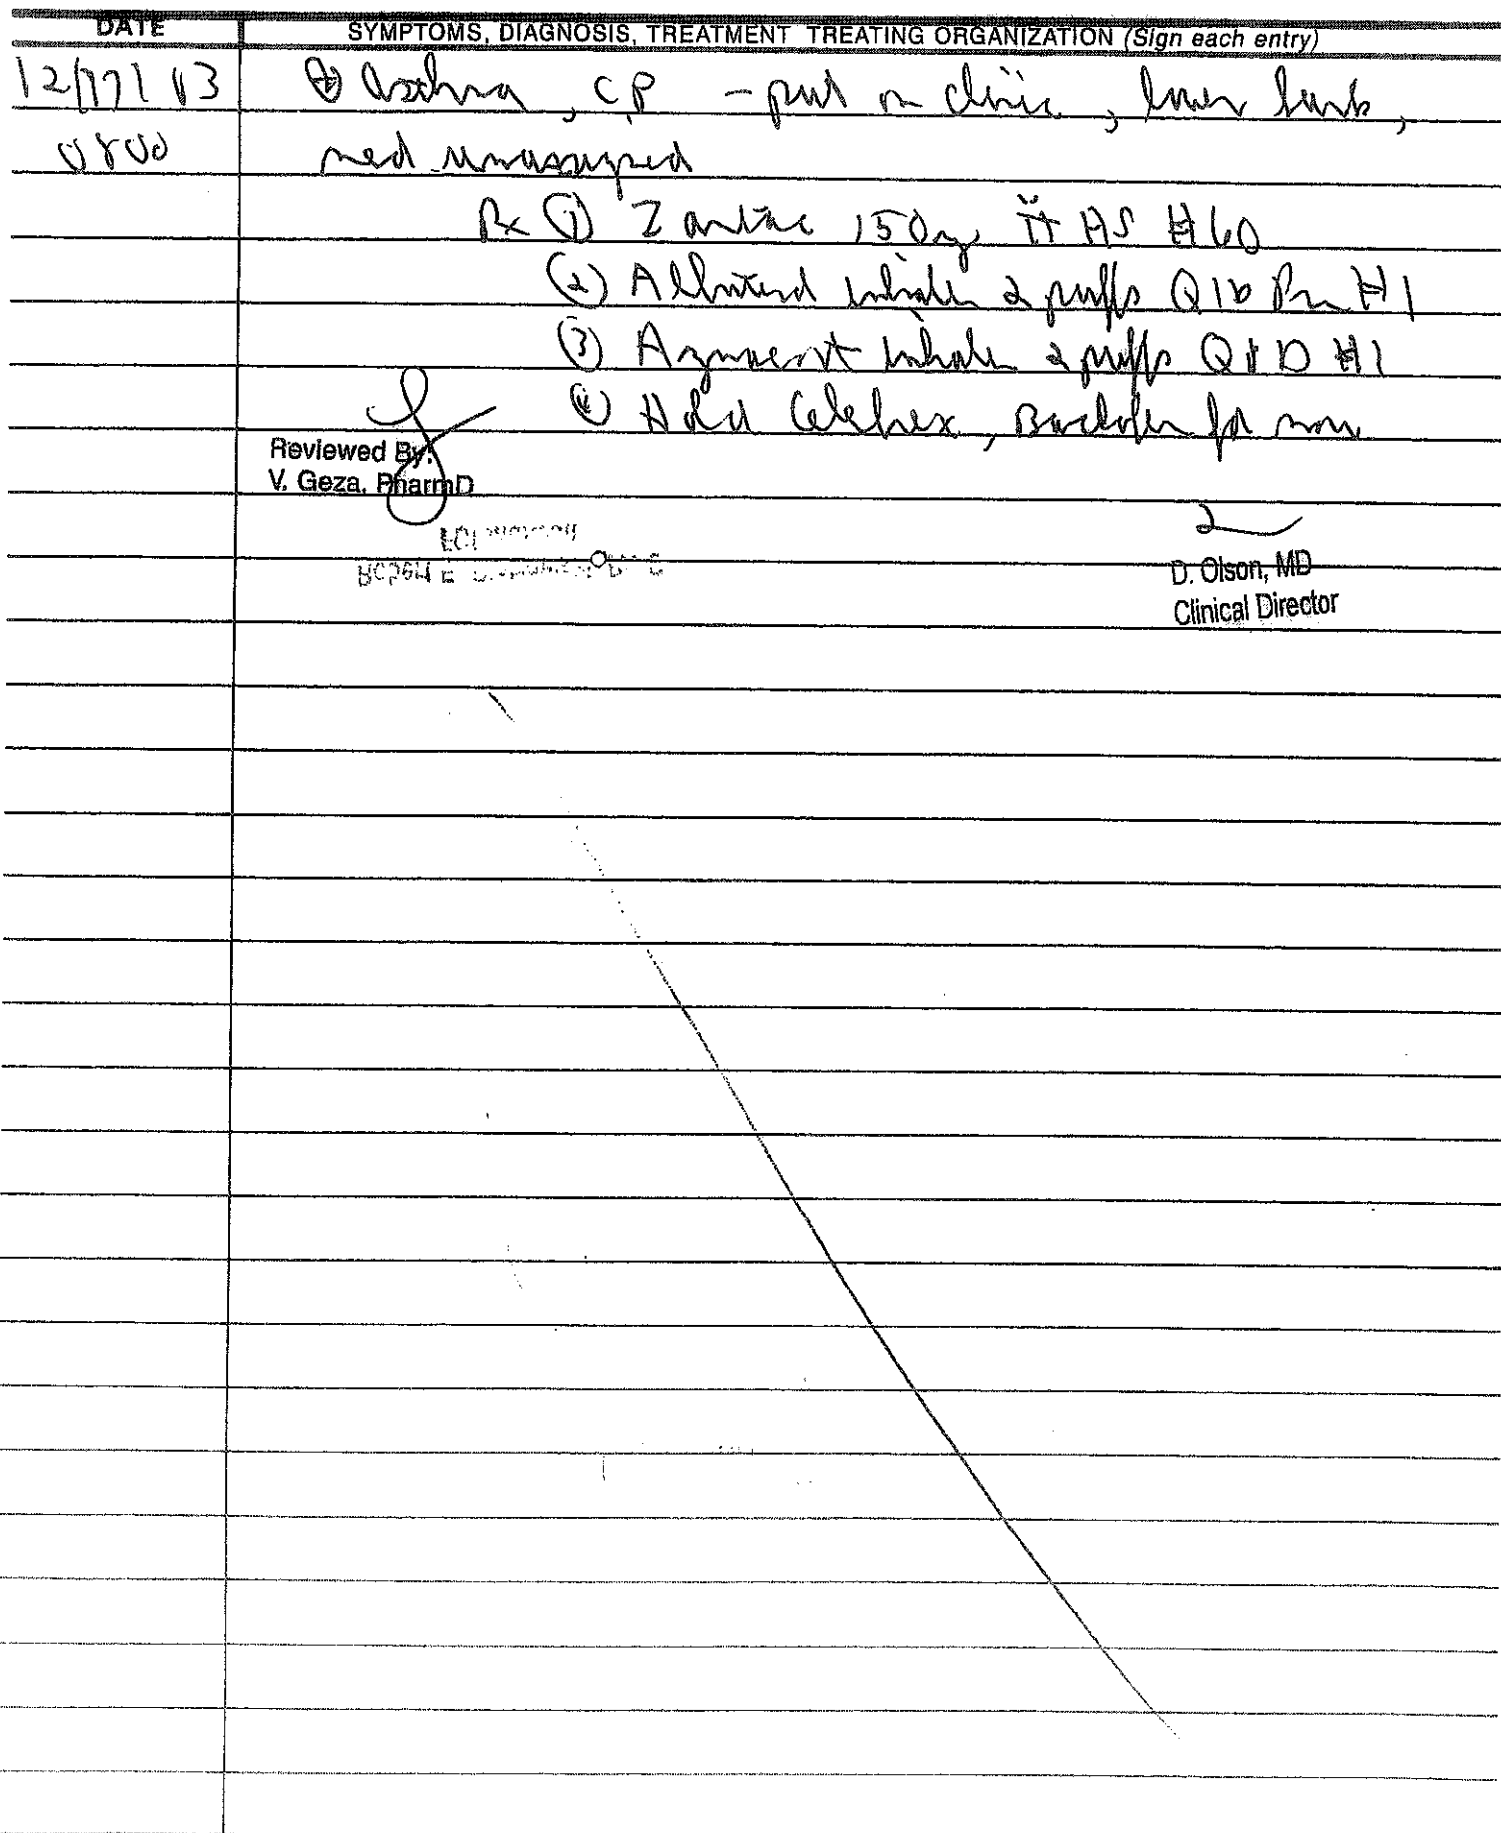 DATE SYMPTOMS, DIAGNOSIS, TREATMENT TREATING ORGANIZATION (Sign each entry)
12/17/03 ⊕ Asthma, CP - put on clinic, lower bunk,
0800 med unassigned
Rx ① Zantac 150mg ii HS #60
② Albuterol inhaler 2 puffs QID Prn #1
③ Azmacort inhaler 2 puffs QID #1
④ Hold Celebrex, Baclofen for now
Reviewed By:
V. Geza, PharmD
D. Olson, MD
Clinical Director